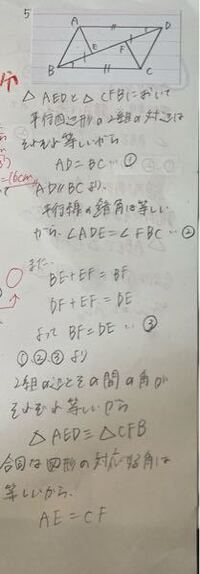 5
A D
E F
B C
△AEDと△CFBにおいて
平行四辺形の2組の対辺は
それぞれ等しいから
AD=BC…①
AD//BCより、
平行線の錯角は等しい
から、∠ADE=∠FBC…②
また、
BE+EF=BF
DF+EF=DE
よってBF=DE…③
①,②,③より
2組の辺とその間の角が
それぞれ等しいから
△AED≡△CFB
合同な図形の対応する角は
等しいから、
AE=CF
16cm